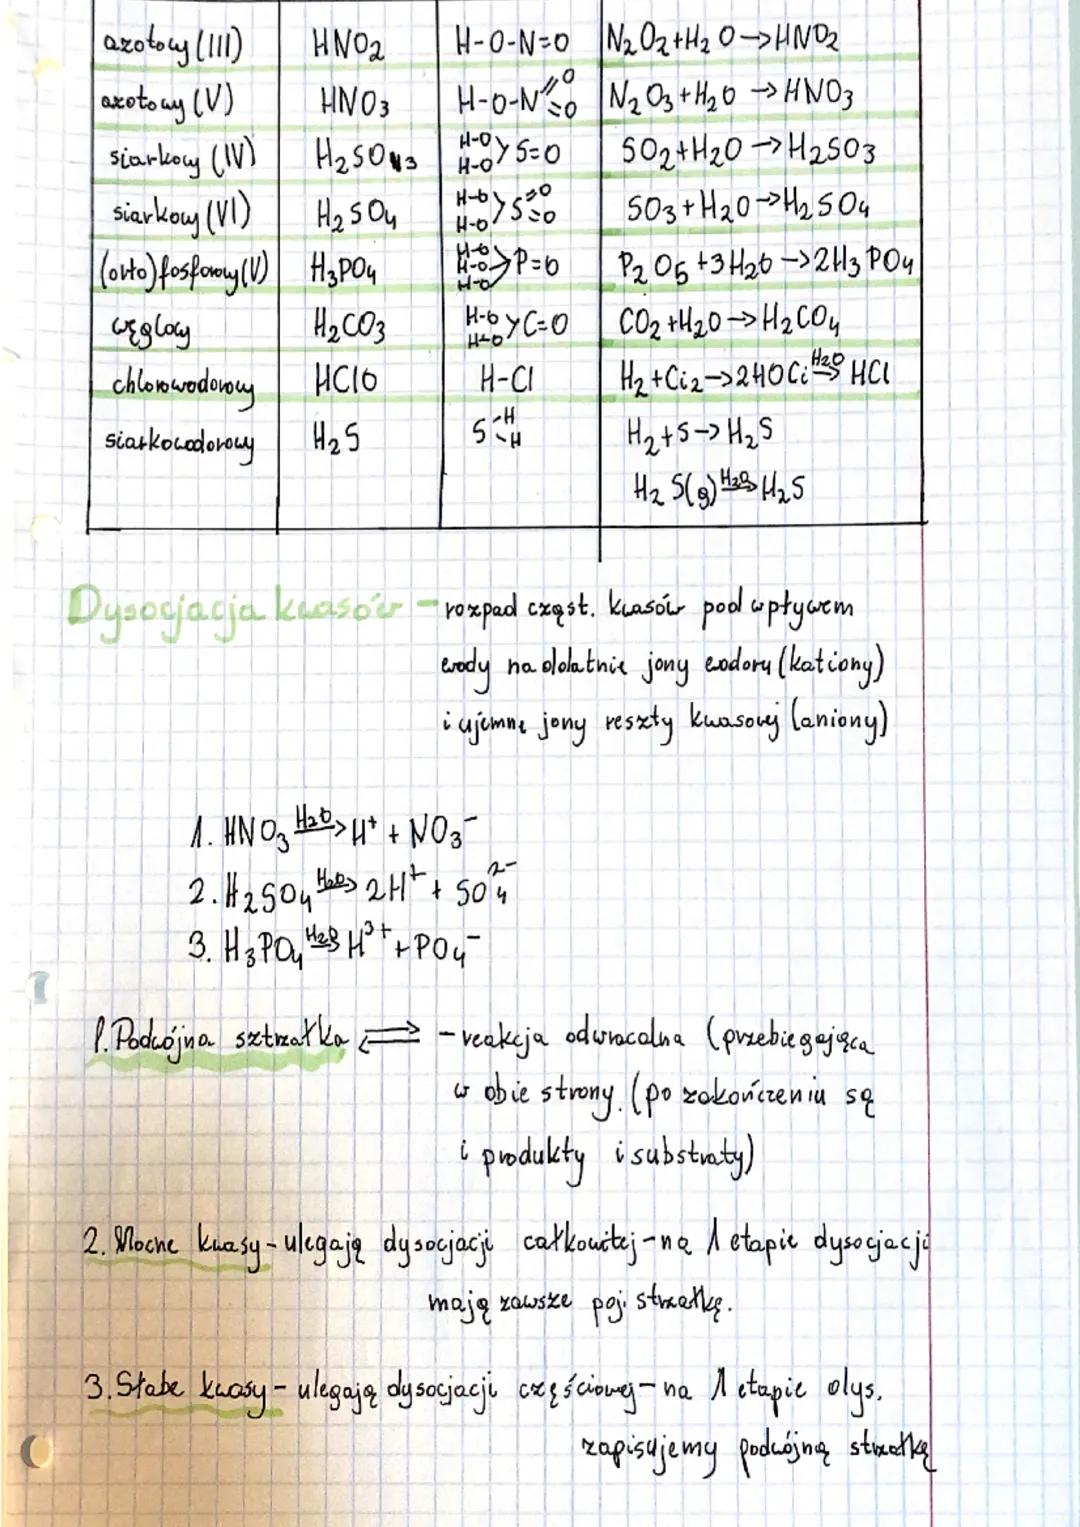 azotowy (III) HNO2 H-O-N=O N2O2+H2O->HNO2
azotowy (V) HNO3 H-O-N=O =O N2O3+H2O->HNO3
siarkowy (IV) H2SO3 H-O H-O >S=O SO2+H2O->H2SO3
siarkowy (VI) H2SO4 H-O H-O >S=O =O SO3+H2O->H2SO4
(orto)fosforowy(V) H3PO4 H-O H-O H-O >P=O P2O5+3H2O->2H3PO4
węglowy H2CO3 H-O H-O >C=O CO2+H2O->H2CO4
chlorowodorowy HClO H-Cl H2+Ci2->2HOCi H2O-> HCl
siarkowodorowy H2S S-H -H H2+S->H2S
H2S(g) H2O-> H2S
Dysocjacja kwasów - rozpad cząst. kwasów pod wpływem
wody na dodatnie jony wodoru (kationy)
i ujemne jony reszty kwasowej (aniony)
1. HNO3 H2O-> H+ + NO3-
2. H2SO4 H2O-> 2H+ + SO4 2-
3. H3PO4 H2O-> H3+ + PO4-
1. Podwójna sztrzałka ⇌ - reakcja odwracalna (przebiegająca
w obie strony. (po zakończeniu są
i produkty i substraty)
2. Mocne kwasy - ulegają dysocjacji całkowitej - na 1 etapie dysocjacji
mają zawsze poj. strzałkę.
3. Słabe kwasy - ulegają dysocjacji częściowej - na 1 etapie dys.
zapisujemy podwójną strzałkę